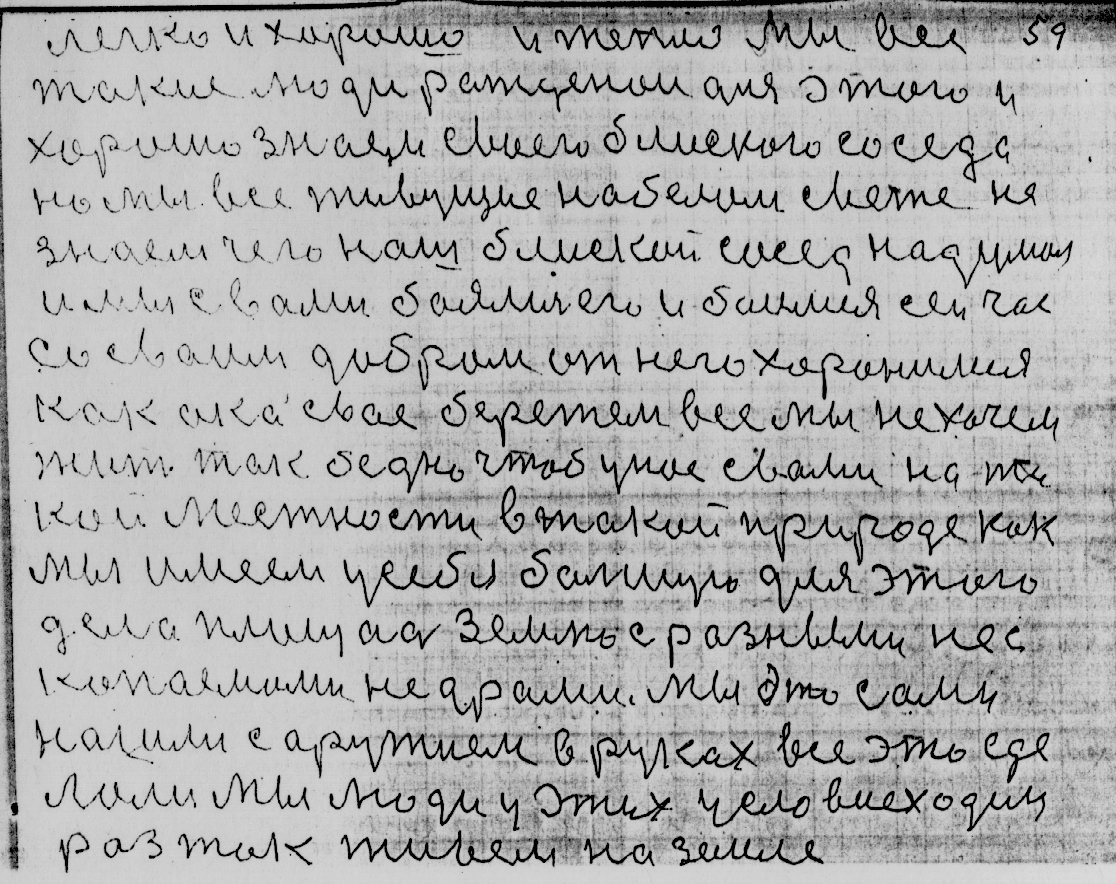 легко и хорошо и тепло мы все 59
такие люди ражденои для этого и
хорошо знаем своего блиского соседа
но мы все живущие на белом свете не
знаем чего наш блиской сосед надумал
и мы с вами баялися его и боимся сейчас
со сваим добром от него хоронимся
как ока свае бережем все мы не хочем
жить так бедно чтоб у нас с вами на та
кой местности в такой природе как
мы имеем у себя большую для этого
дела площадь землю с разными иес
копаемами недрами. мы это сами
нашли с аружием в руках все это сде
лали мы люди у этих условиеходим
раз так живем на земле